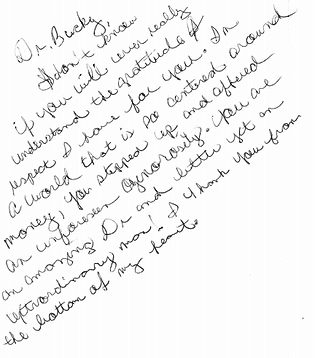 Dr. Bucky,
I don't know
if you will ever really
understand the gratitude &
respect I have for you. In
a world that is so centered around
money, you stepped up and offered
an unforseen generosity. You are
an amazing Dr and better yet an
extraordinary man! I thank you from
the bottom of my heart.